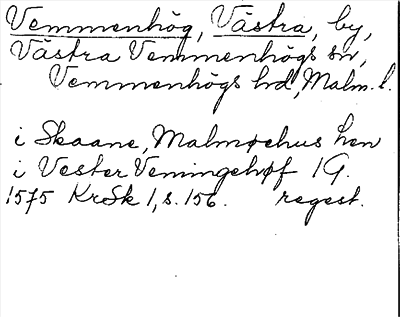 Vemmenhög, Västra, by,
Västra Vemmenhögs sn,
Vemmenhögs hd, Malm. l.
i Skaane, Malmøehus len
i Vester Vemingehøf 1 G.
1575 KrSk 1, s. 156. regest.